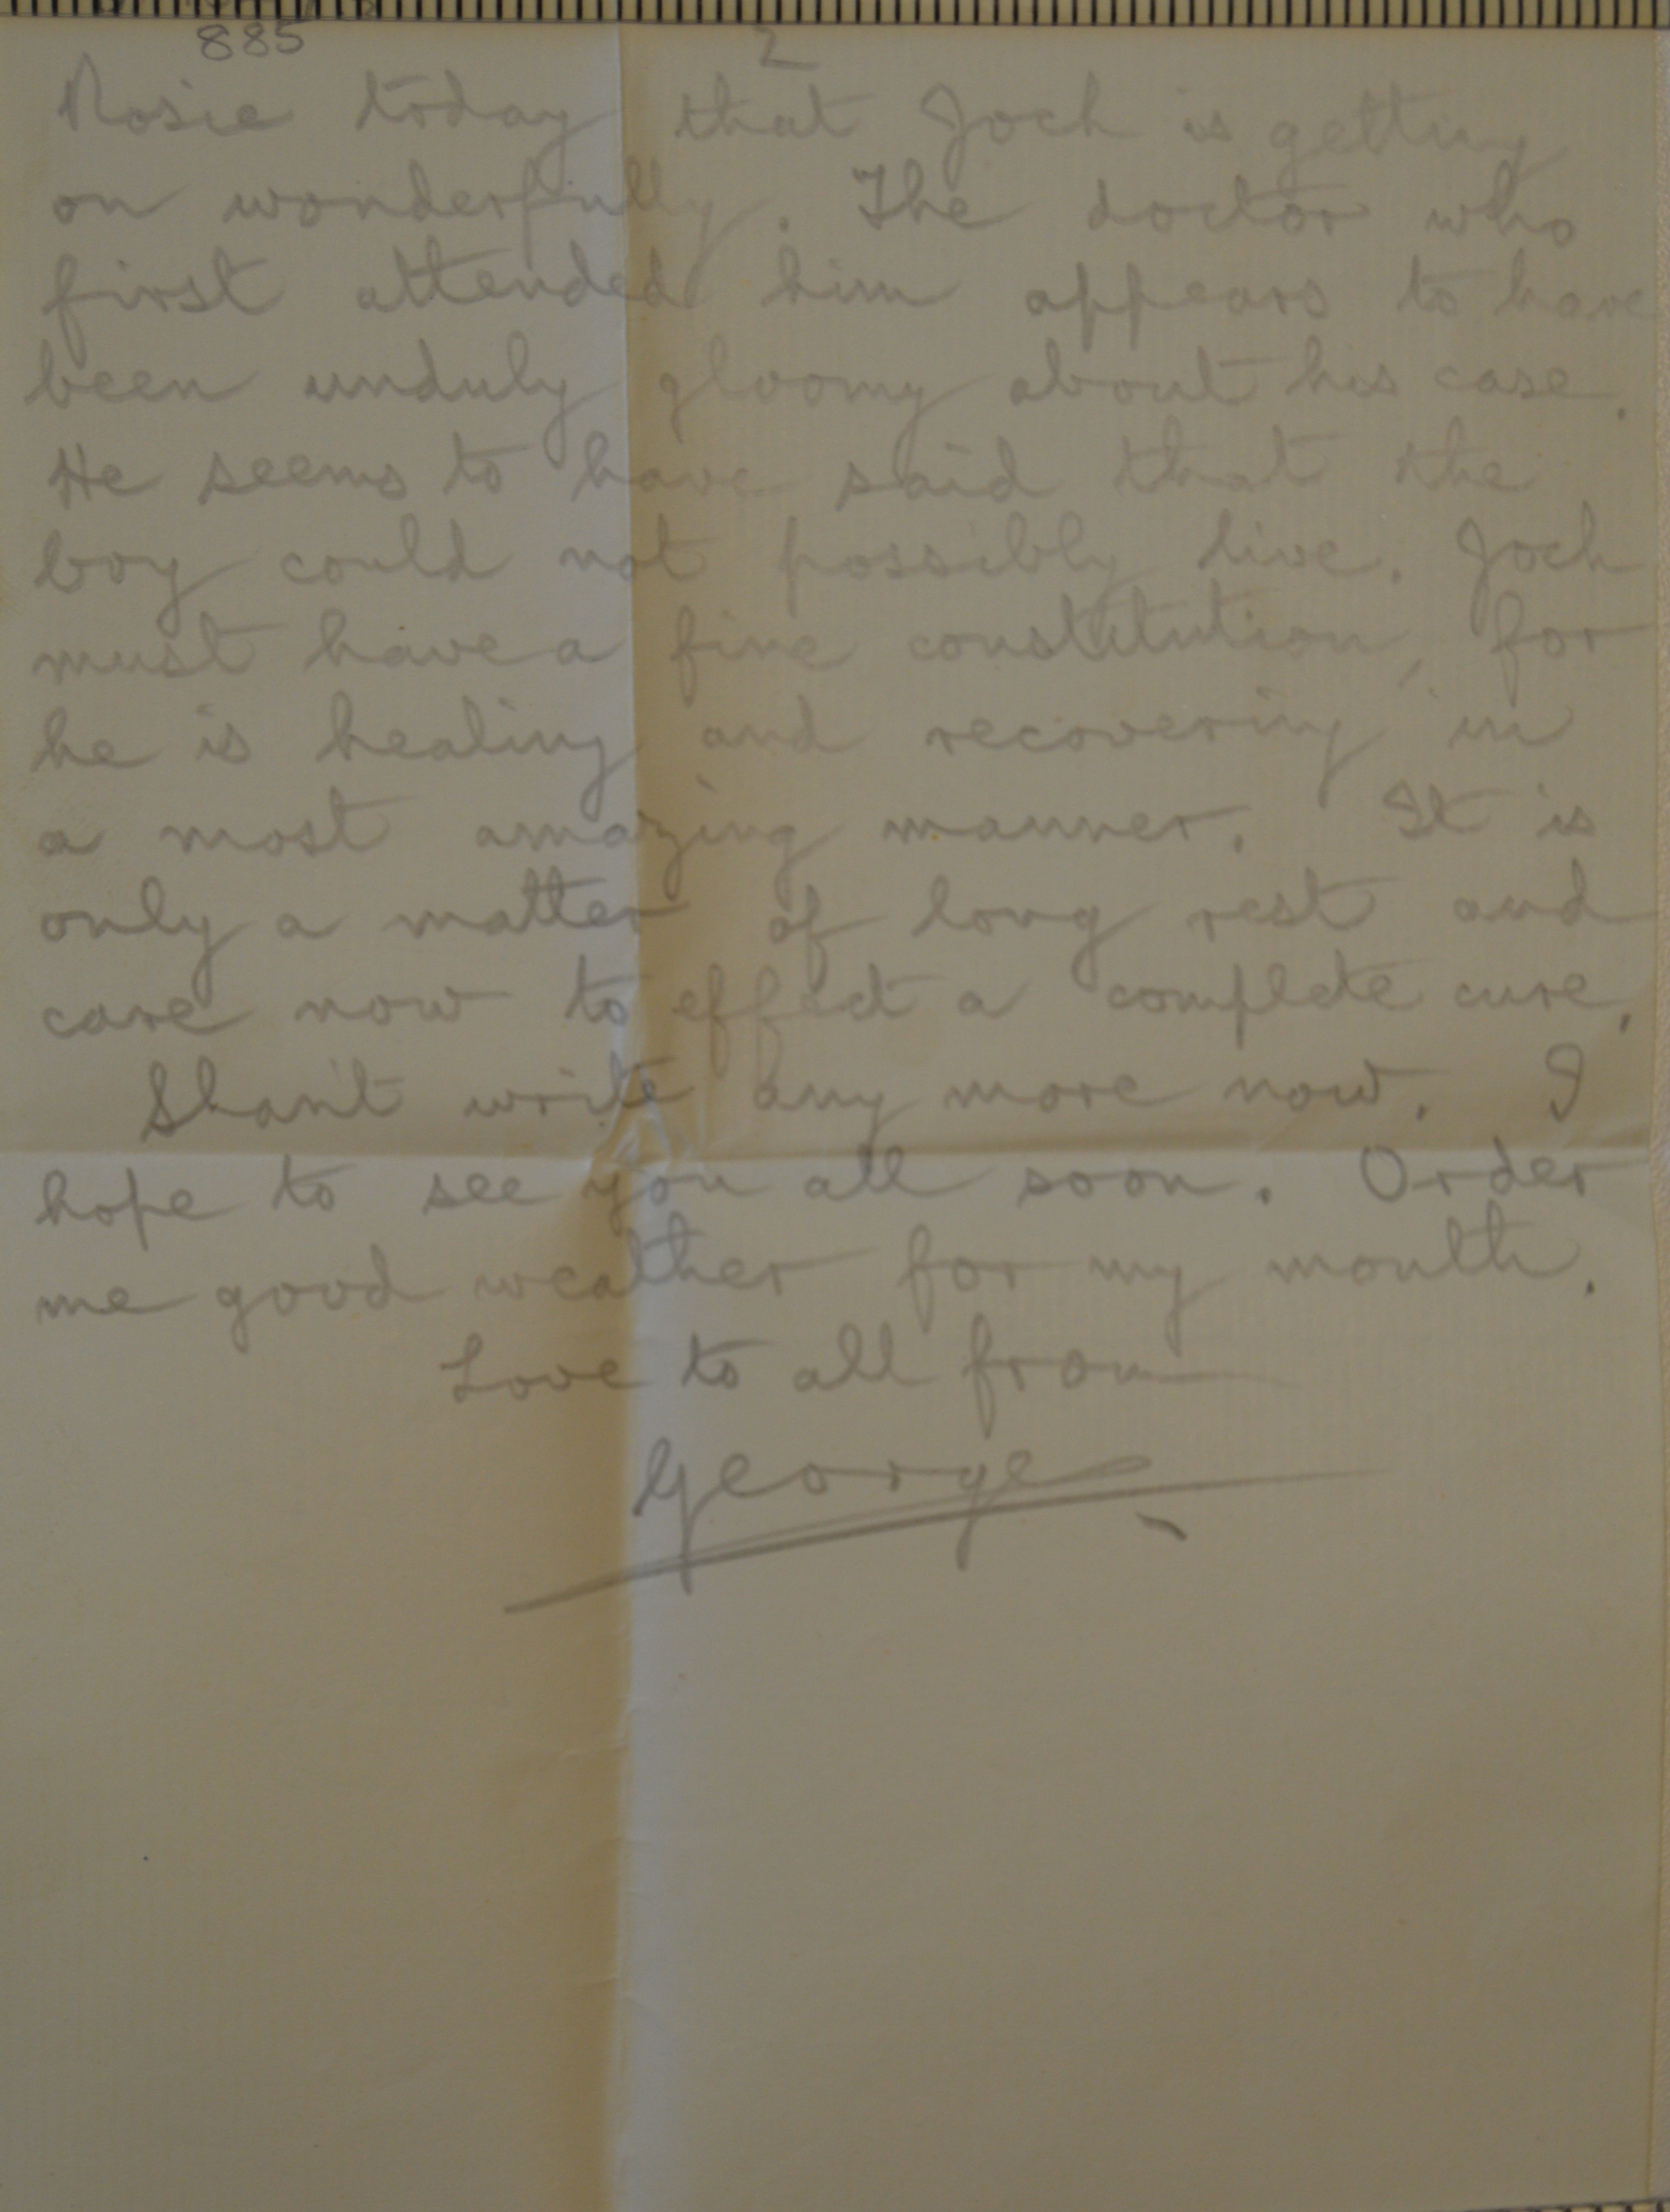 885
2
Rosie today that Jock is getting
on wonderfully. The doctor who
first attended him appears to have
been unduly gloomy about his case.
He seems to have said that the
boy could not possibly live. Jock
must have a fine constitution, for
he is healing and recovering in
a most amazing manner. It is
only a matter of long rest and
care now to effect a complete cure.
Shan't write any more now. I
hope to see you all soon. Order
me good weather for my month.
Love to all from
George